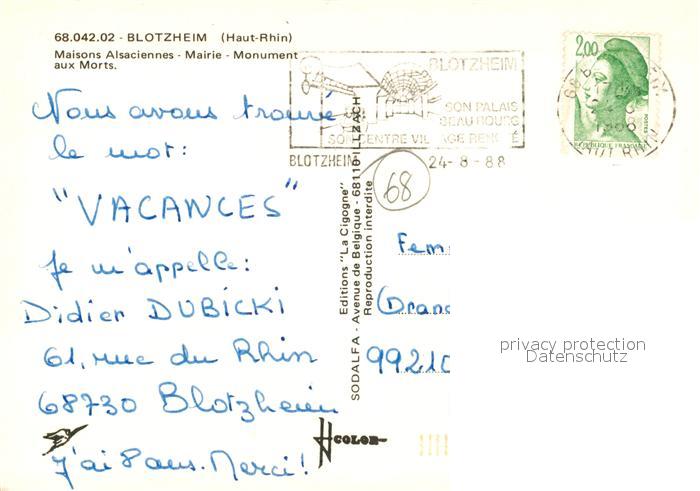 68.042.02 - BLOTZHEIM (Haut-Rhin)
Maisons Alsaciennes - Mairie - Monument
aux Morts.
BLOTZHEIM
SON PALAIS
BEAU BOURG
SON CENTRE VILLAGE RENOVÉ
BLOTZHEIM 24-8-88
2,00
POSTES
REPUBLIQUE FRANÇAISE
HAUT RHIN
68
Nous avons trouvé
le mot:
"VACANCES"
Je m'appelle:
Didier DUBICKI
61, rue du Rhin
68730 Blotzheim
J'ai 8 ans. Merci!
Editions "La Cigogne"
SODALFA - Avenue de Belgique - 68110 ILLZACH
Reproduction interdite
Fem
Gran
99210
privacy protection
Datenschutz
COLOR